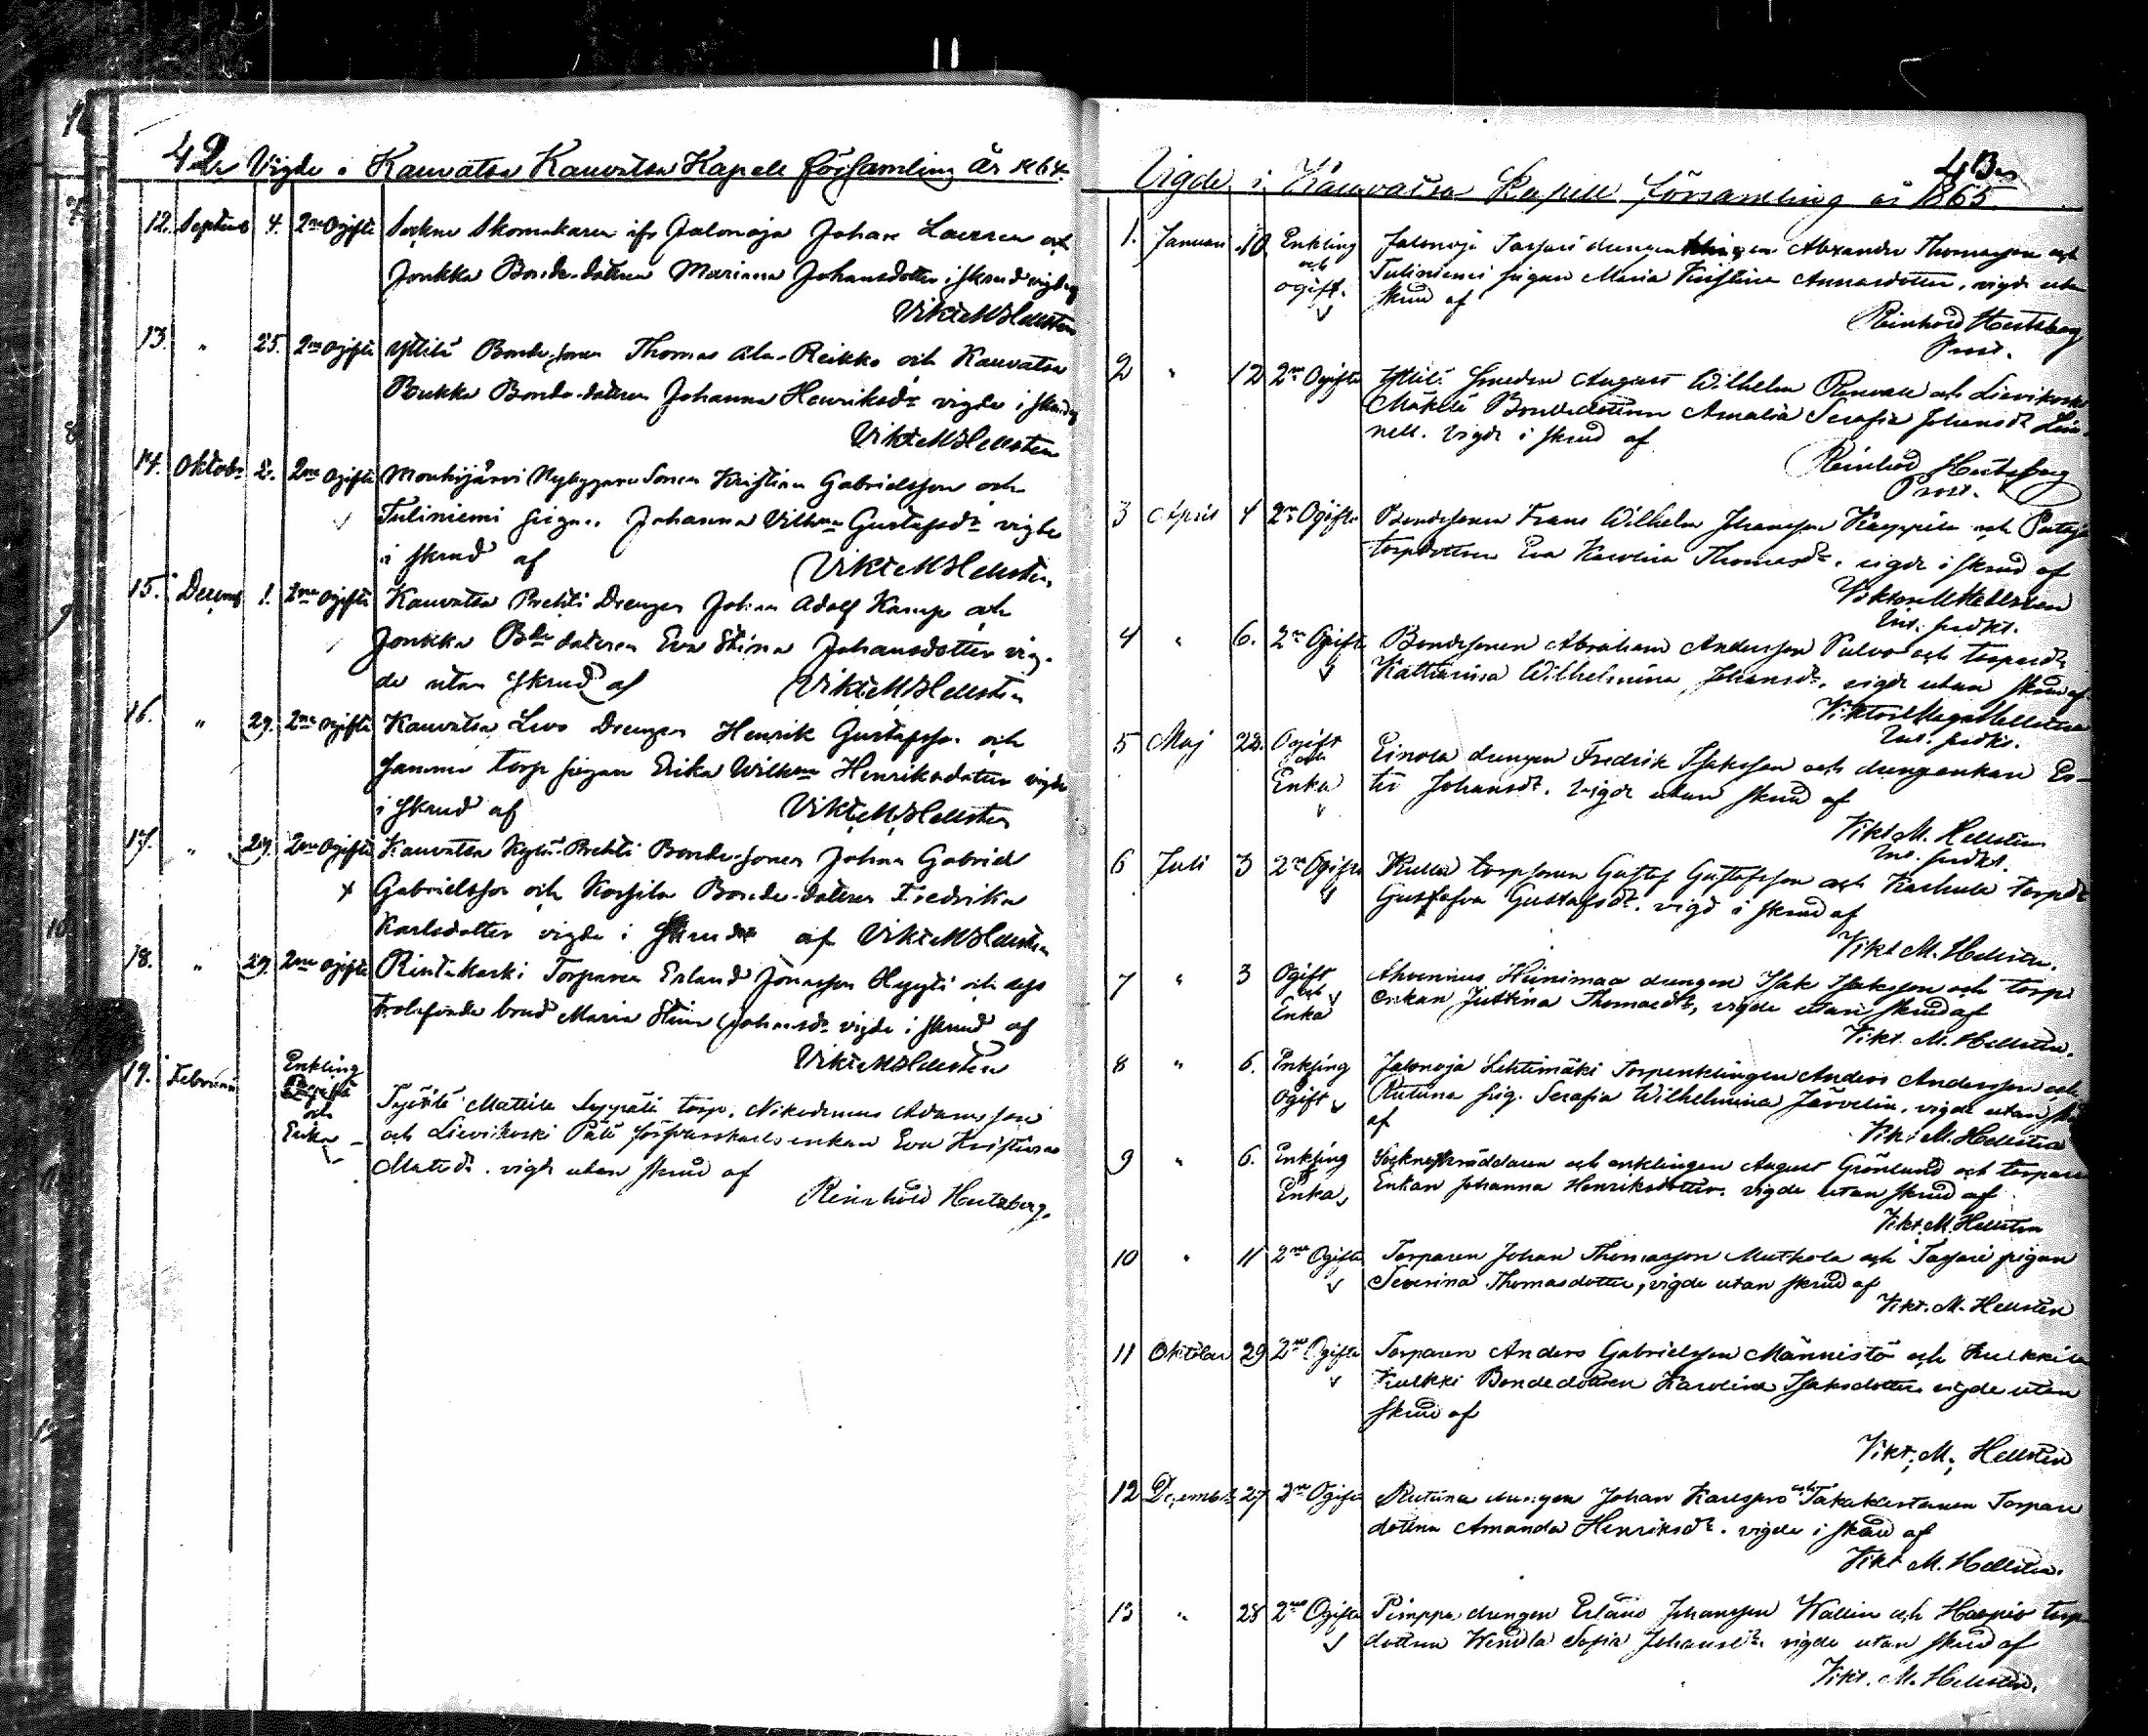 42. Vigde i Kauvatsa Kauvatsa Kapell församling År 1864.
12. Septemb 4. 2ne Ogifte Sockne Skomakaren ifr Jalonoja Johan och
Jonkka Bonde-dotren Marianna Johansdotter i skrud vigde af
Vikt. M. Hellsten
13. " 25. 2ne ogifte Yttilä Bonde-sonen Thomas Ala-Reikko och Kauvatsa
Pukka Bonde-dotren Johanna Henriksdr vigde i skrud af
Vikt. M. Hellsten
14. Oktobr 2. 2ne ogifte Mouhijärvi Nybyggare Sonen Kristian Gabrielsson och
Tuliniemi pigan Johanna Vilhna Gustafsdr vigde
i skrud af Vikt. M. Hellsten
15. Decemb 1. 2ne ogifte Kauvatsa Prehti Drengen Johan Adolf Kamp och
Jonkka Bde dotren Eva Stina Johansdotter vig-
de utan skrud af Vikt. M. Hellsten
16. " 29. 2ne ogifte Kauvatsa Levo Drengen Henrik Gustafsson och
samma torp pigan Erika Wilhna Henriksdotter vigde
i skrud af Vikt. M. Hellsten
17. " 29. 2ne Ogifte Kauvatsa Kylä-Prehti Bonde-sonen Johan Gabriel
Gabrielsson och Korsila Bonde-dotren Fredrika
Karlsdotter vigde i skrud af Vikt. M. Hellsten
18. " 29. 2ne ogifte Rintakoski Torparen Erland Jonasson Hyyti och dess
trolofvade brud Maria Stina Johansdr vigde i skrud af
Vikt. M. Hellsten
19. Februari Enkling
och
Enka
Mattila Seppälä torp. Nikodemus Adamsson
och Lievikoski enkan Eva Kristina
Matsdr. vigde utan skrud af
Reinhold Hertzberg.
43.
Vigde i Kauvatsa Kapell församling år 1865
1. Januari 10. Enkling
och
ogift.
Jalonoja Tassari drengenklingen Alexander Thomasson och
Tuliniemi pigan Maria Kristina Annasdotter, vigde utan
skrud af
Reinhold Hertzberg
Prost.
2 " 12 2ne Ogifte Yttilä Smeden August Wilhelm Renvall och Lievikoski
Mäkelä Bondedottren Amalia Serafia Johansdr Lin-
nell. vigde i skrud af
Reinhold Hertzberg
Prost.
3 April 4 2ne Ogifte Bondesonen Frans Wilhelm Johansson och
torpdottren Eva Karolina Thomasdr. vigde i skrud af
Viktor M Hellsten
4 " 6. 2ne Ogifte Bondesonen Abraham Andersson och torpardr
Katharina Wilhelmina Johansdr. vigde utan skrud af
Viktor Hellsten
5 Maj 22. Ogift
och
Enka
Einola drengen Fredrik Isaksson och drengenkan Es-
ter Johansdr. vigde utan skrud af
Vikt M. Hellsten
6 Juli 3 2ne Ogifte Kulla torpsonen Gustaf Gustafsson och Karhula torpdr
Gustafva Gustafsdr. vigd i skrud af
Vikt M. Hellsten.
7 " 3 Ogift
och
Enka
Ahvenus Heinimaa drengen Isak Isaksson och torp
enkan Justina Thomasdr, vigde utan skrud af
Vikt. M. Hellsten.
8 " 6. Enkling
ogift
Jalonoja Lehtimäki Torpenklingen Anders Andersson och
Rutuna pig. Serafia Wilhelmina Järvelin. vigde utan skr
af
Vikt M. Hellsten
9 " 6. Enkling
Enka
Sockneskräddaren och enklingen August Grönlund och torpare
Enkan Johanna Henriksdotter. vigde utan skrud af
Vikt. M. Hellsten
10 " 11 2ne Ogifte Torparen Johan Thomasson Mutkola och Tassari pigan
Severina Thomasdotter, vigde utan skrud af
Vikt. M. Hellsten
11 Oktober 29 2ne Ogifte Torparen Anders Gabrielsson Männistö och Kulkkila
Kulkki Bondedottren Karolina Isaksdotter vigde utan
skrud af
Vikt. M. Hellsten
12 December 27 2ne Ogifte Rutuna drengen Johan Karlsson och Takakartanon Torpare
dottren Amanda Henriksdr. vigde i skrud af
Vikt M. Hellsten.
13 " 28 2ne Ogifte Pimppa drengen Erland Johansson Wallin och Haapio torp
dottren Wendla Sofia Johansdr. vigde utan skrud af
Vikt. M. Hellsten.